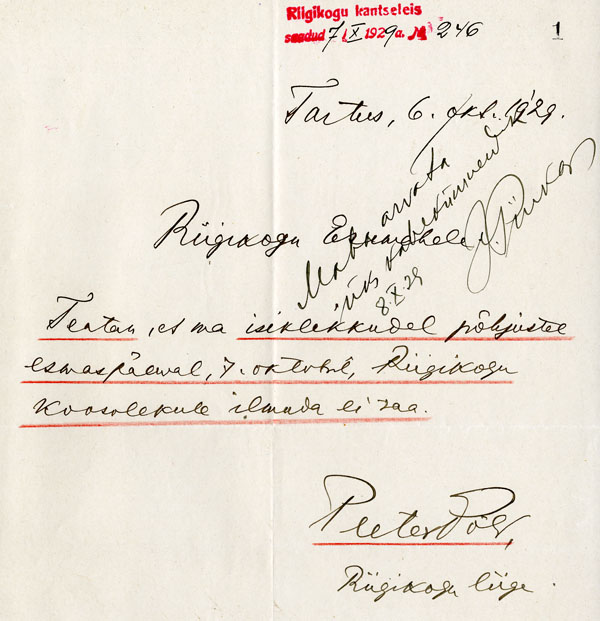 Riigikogu kantseleis
saadud 7/X 1929 a. № 246
1
Tartus, 6. okt. 1929.
Riigikogu Esimehele
Maha arvata
üks
8.X.29
Teatan, et ma isiklikkudel põhjustel
esmaspäewal, 7. oktobril, Riigikogu
koosolekule ilmuda ei saa.
Peeter Põld,
Riigikogu liige.